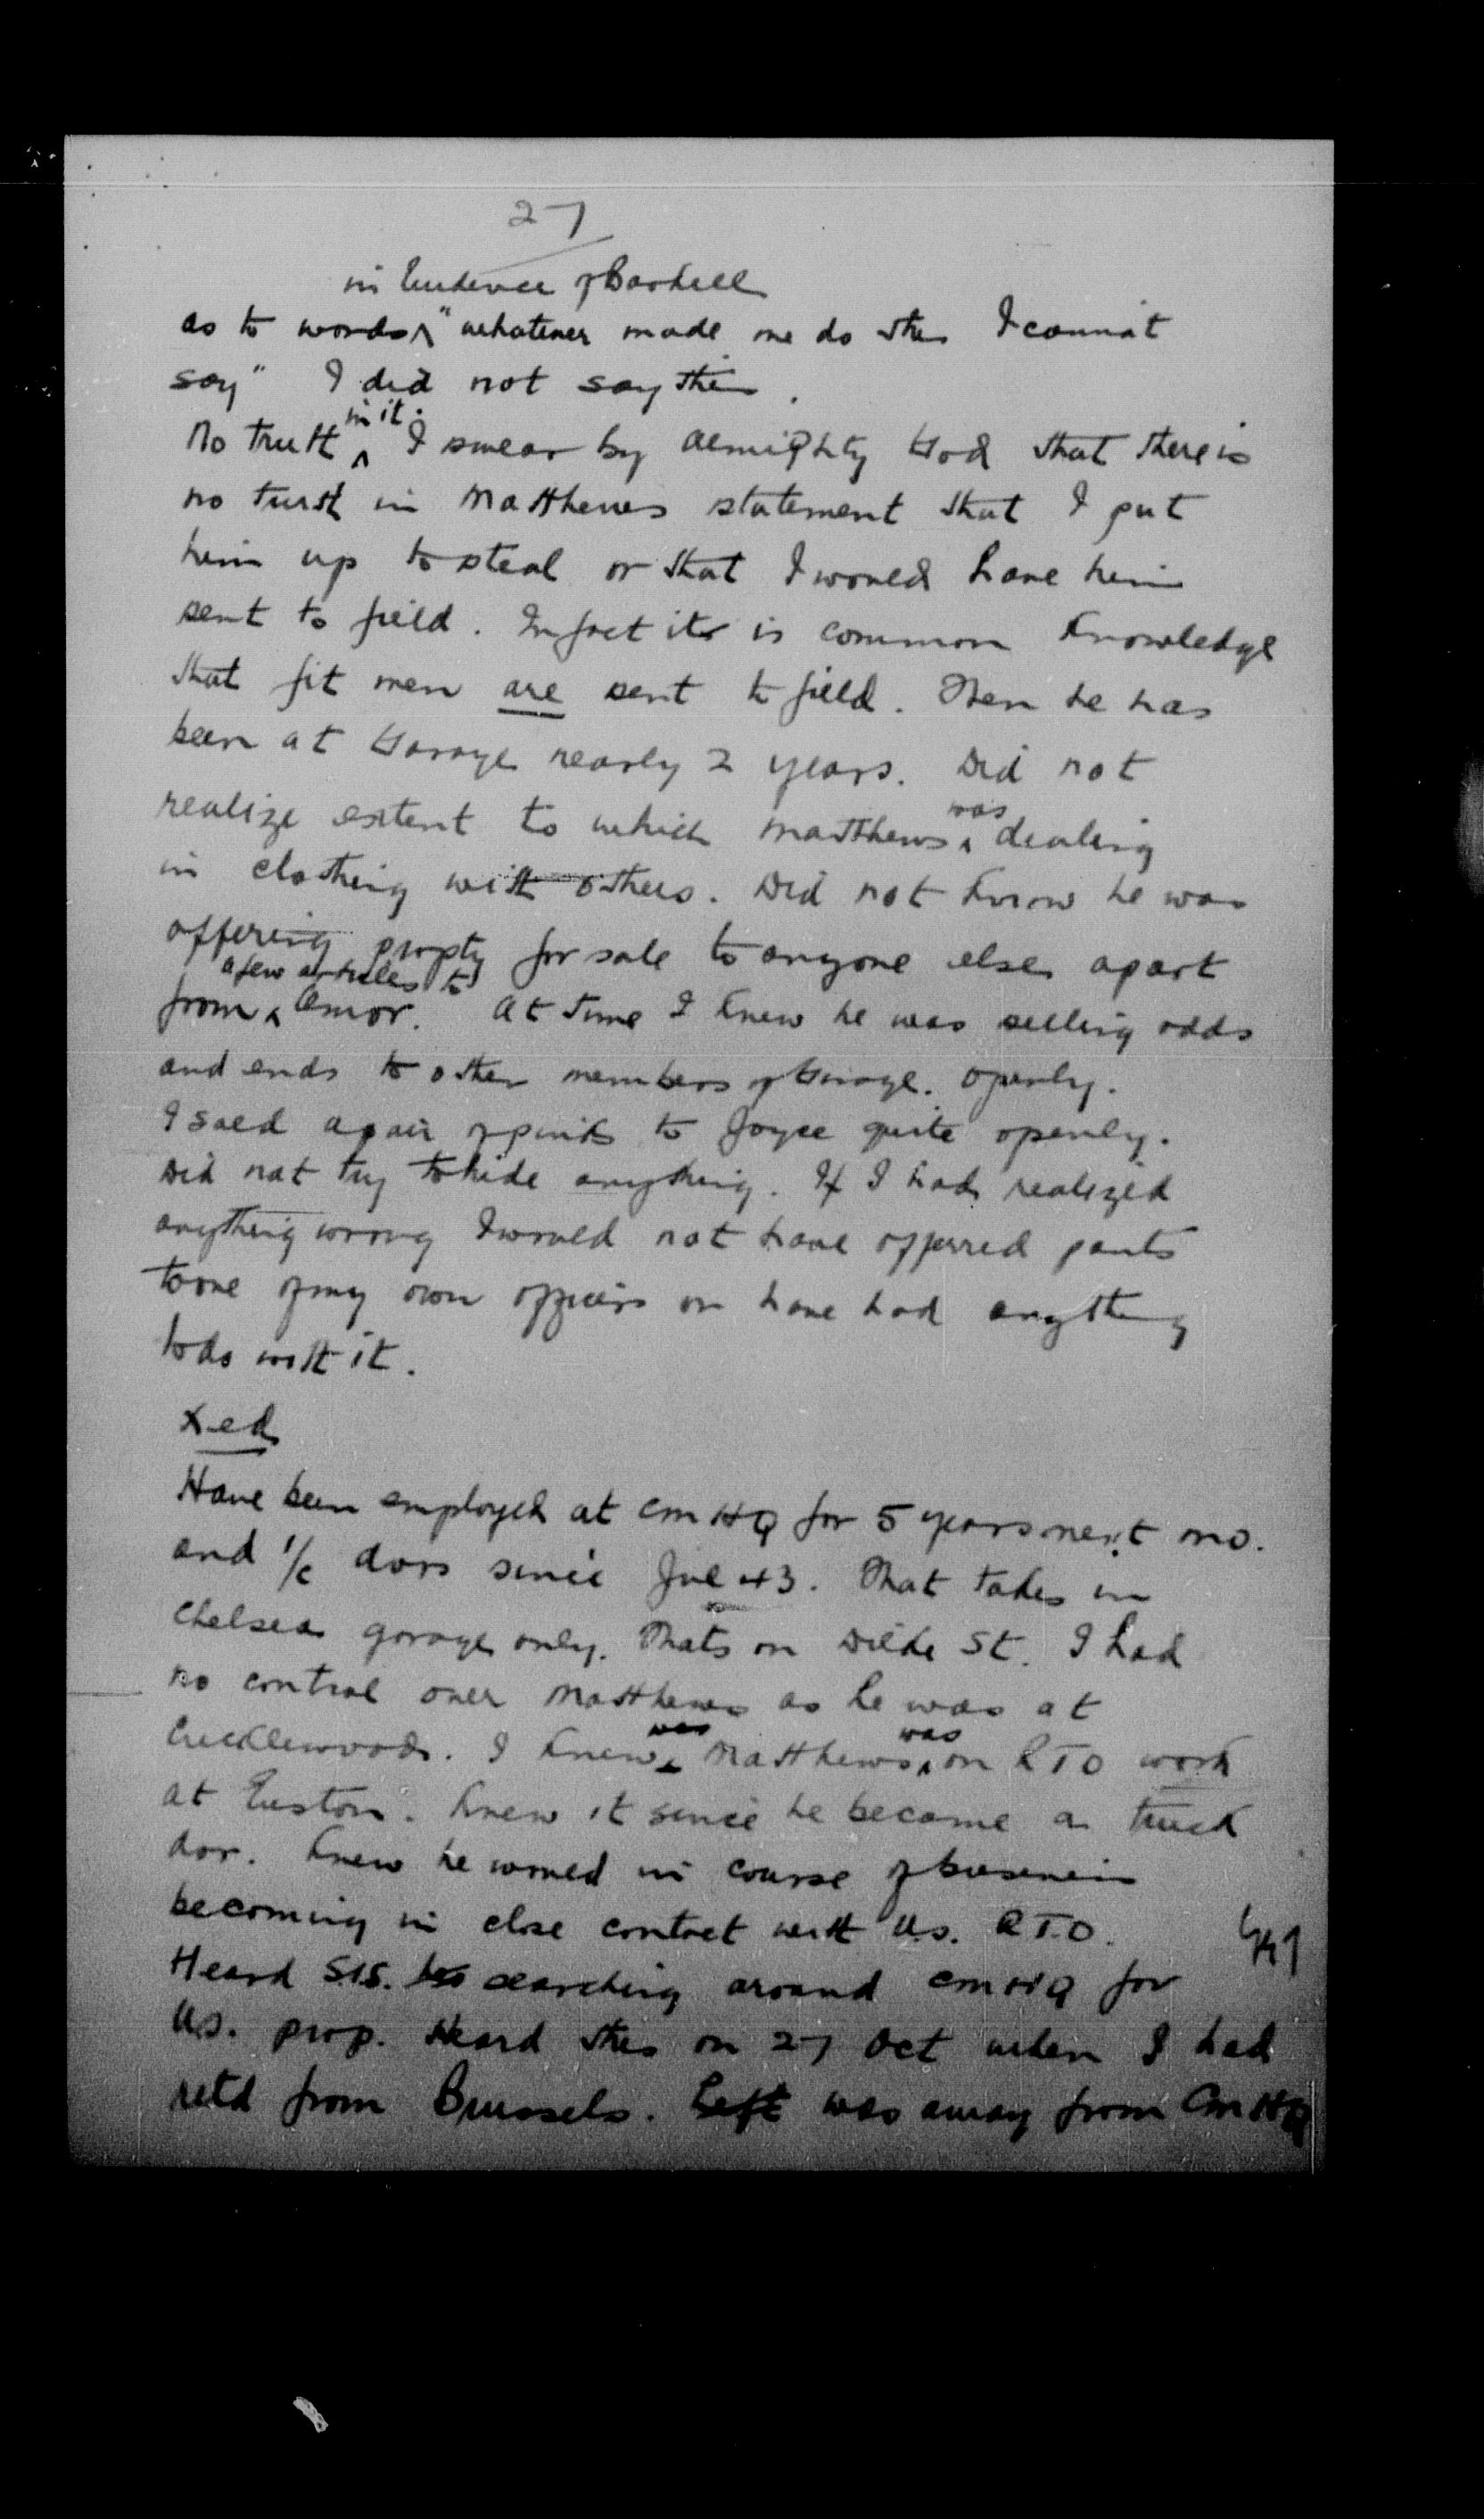 27
in Evidence of
as to words "whatever made me do this I cannot
say" I did not say this.
in it.
No truth I swear by Almighty God that there is
no truth in Matthews statement that I put
him up to steal or that I would have him
sent to field. In fact it is common knowledge
that fit men are sent to field. Then he has
been at Garage nearly 2 years. Did not
was
realize extent to which Matthews dealing
in clothing with others. Did not know he was
offering propty for sale to anyone else apart
a few articles to
from Amor. At time I knew he was selling odds
and ends to other members of Garage. Openly.
I sold a pair of pants to Joyce quite openly.
Did not try to hide anything. If I had realized
anything wrong I would not have offerred pants
to one of my own officers or have had anything
to do with it.
Xed
Have been employed at CMHQ for 5 years next mo.
and i/c dvrs since Jul 43. That takes in
Chelsea garage only. Thats on Dilke St. I had
no control over Matthews as he was at
was was
Cricklewood. I knew Matthews on RTO work
at Euston. Knew it since he became a truck
dvr. Knew he would in course of business
becoming in close contact with U.S. RTO.
Heard SIS. searching around CMHQ for
U.S. prop. Heard this on 27 Oct when I had
retd from Brussels. Left was away from CMHQ